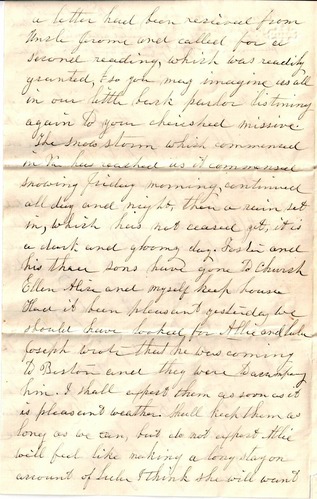 a letter had been received from
Uncle Jerome and called for a
second reading, which was readily
granted, & so you may imagine us all
in our little back parlor listening
again to your cherished missive.
The snow storm which commenced
in has reached us it commenced
snowing Friday morning, continued
all day and night, then a rain set
in, which has not ceased yet, it is
a dark and gloomy day. and
his three sons have gone to Church
Ellen and myself keep house
Had it been pleasant yesterday we
should have looked for Allie and Lulu
Joseph wrote that he was coming
to Boston and they were to accompany
him. I shall expect them as soon as it
is pleasant weather. Shall keep them as
long as we can, but do not expect Allie
will feel like making a long stay on
account of Lulu I think she will want